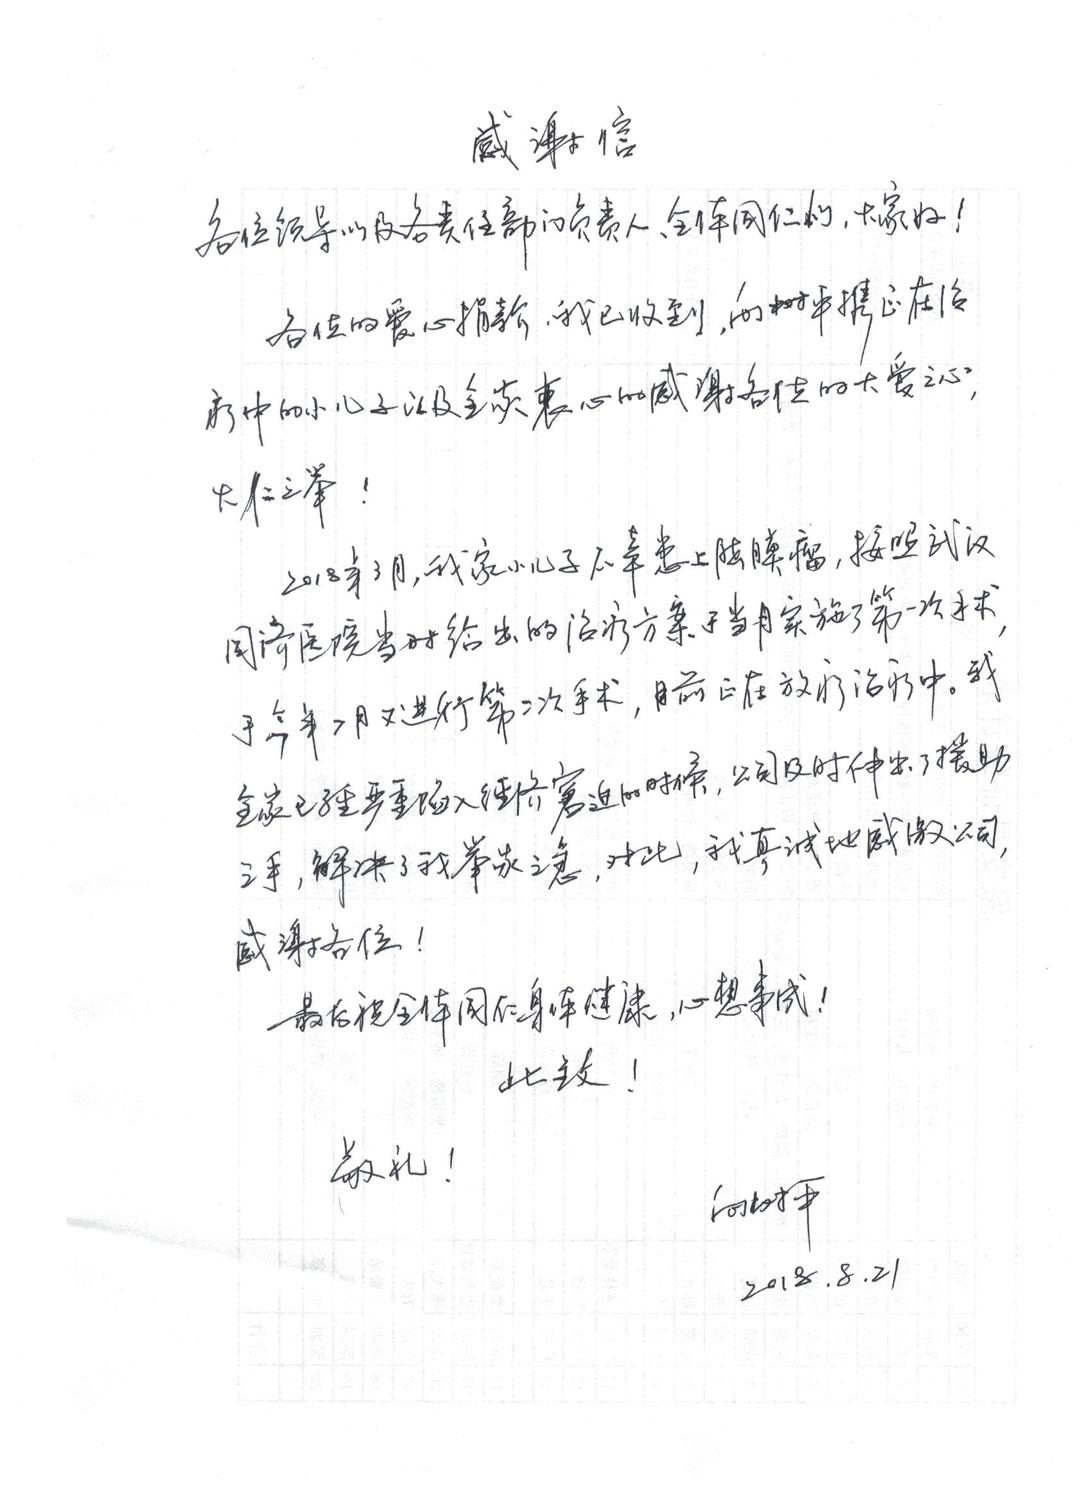 感谢信
各位领导以及各责任部门负责人、全体同仁们，大家好！
各位的爱心捐款，我已收到，向树平携正在治
疗中的小儿子以及全家衷心的感谢各位的大爱之心，
大仁之举！
2018年3月，我家小儿子不幸患上脑膜瘤，按照武汉
同济医院当时给出的治疗方案于当月实施了第一次手术，
于今年7月又进行第二次手术，目前正在放疗治疗中。我
全家已经严重陷入经济窘迫的时候，公司及时伸出了援助
之手，解决了我举家之急，对此，我真诚地感激公司，
感谢各位！
最后祝全体同仁身体健康，心想事成！
此致！
敬礼！
向树平
2018.8.21